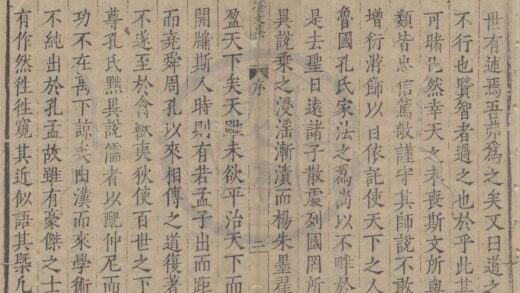 世有述焉吾弗為之矣又曰道之
不行也賢智者過之也於乎此其
可睹已然幸天之未喪斯文所與
類皆忠信篤敬謹守其師說不敢
增衍飾以日依託使天下之人
魯國孔氏家法之為尚以不畔於
是去聖日遠諸子散處列國罔所
異說乘之浸淫漸漬而楊朱墨翟
文集 序 二
盈天下矣天雖未欲平治天下而
闢牖斯人時則有若孟子出而距
而堯舜周孔以來相傳之道復著
不遂至於禽獸夷狄使百世之下
尊孔氏黜異說儒者以配仲尼而
功不在禹下諒矣由漢而來學術
不純出於孔孟故雖有豪傑之士
有作然往往窺其近似語其槩凡